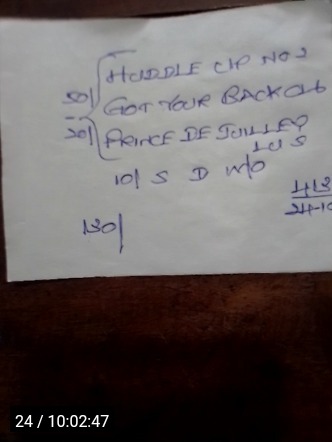 50/ HUDDLE UP NO 2
GOT YOUR BACK
20/ PRINCE DE JUILLET
LUS
10/ S D W/O
130/
24 / 10:02:47